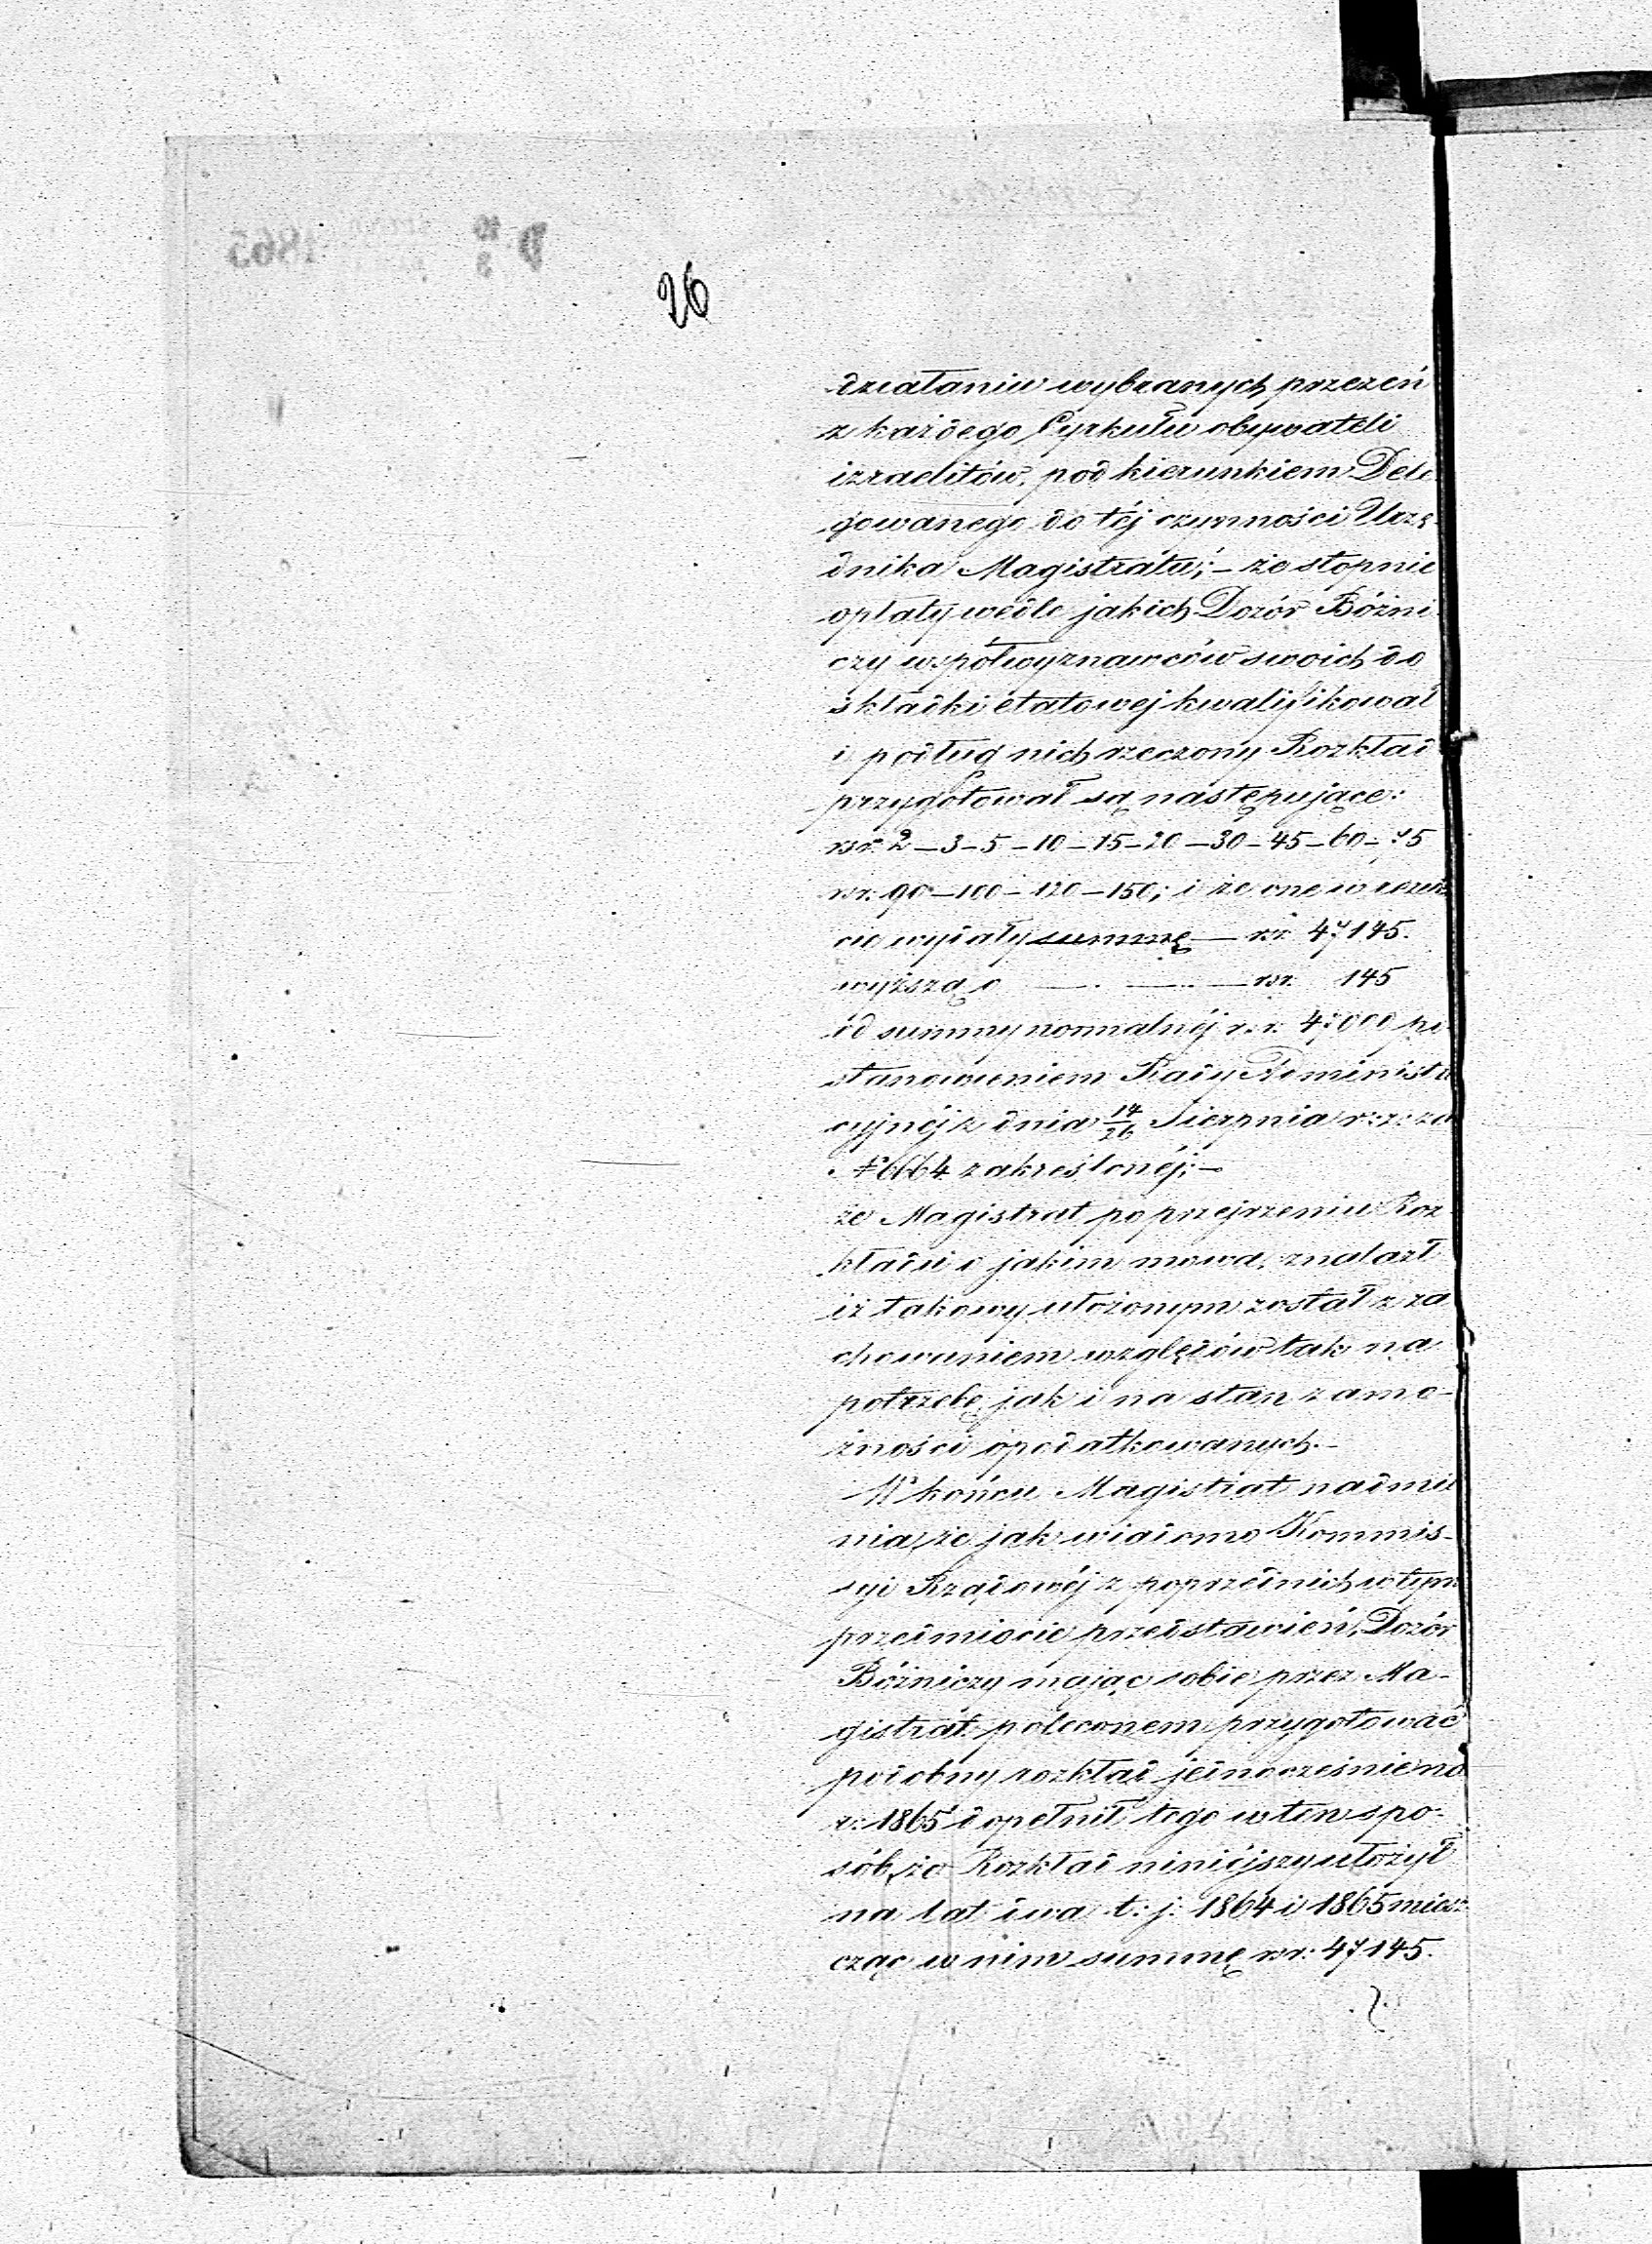 26
działaniu wybranych przezeń
z każdego Cyrkułu obywateli
izraelitów, pod kierunkiem Dele
gowanego do téj czynności Urzę-
dnika Magistratu; – że stopnie
opłaty wedle jakich Dozór Bóżni
czy współwyznawców swoich do
składki etatowej kwalifikował
i podług nich rzeczony Rozkład
przygotował są następujące:
rsr. 2 – 3 – 5 – 10 – 15 – 20 – 30 – 45 – 60 – 75
rsr. 90 – 100 – 120 – 150; i że one w rezul
cie wydały summę — rsr. 47145.
wyższą o — — — rsr. 145
od summy normalnéj rsr. 47000 po
stanowieniem Rady Administra
cyjnéj z dnia 14/26 Sierpnia r: z: za
№ 6664 zakreślonéj; –
że Magistrat po przejrzeniu Roz-
kładu o jakim mowa, znalazł
iż takowy ułożonym został z za
chowaniem względów tak na
potrzebę jak i na stan zamo-
żności opodatkowanych. –
W końcu Magistrat nadmie
nia, że jak wiadomo Kommis-
syi Rządowéj z poprzednich w tym
przedmiocie przedstawień, Dozór
Bóżniczy mając sobie przez Ma-
gistrat poleconem przygotować
podobny rozkład jednocześnie na
r: 1865 dopełnił tego w ten spo-
sób, że Rozkład niniéjszy ułożył
na lat dwa t: j: 1864 i 1865 miesz
cząc w nim summę rsr: 47145.